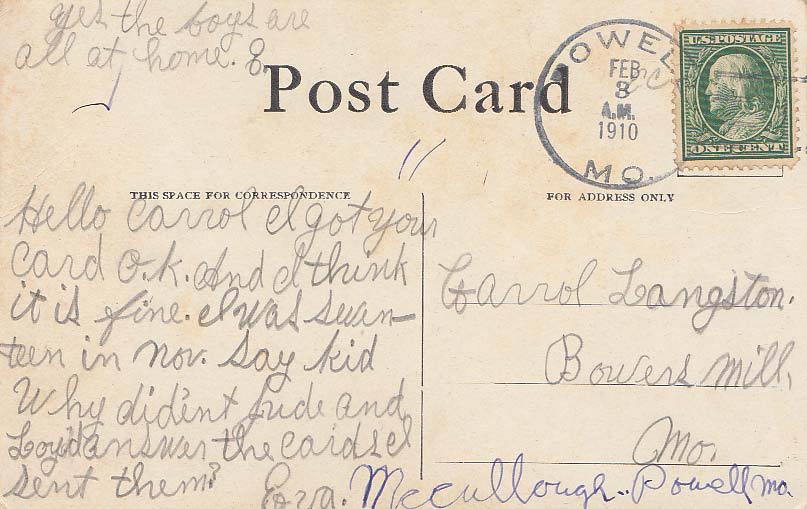 yes the boys are
all at home. E.
Post Card
POWELL
FEB
3
A.M.
1910
MO.
U.S. POSTAGE
ONE CENT
THIS SPACE FOR CORRESPONDENCE
Hello Carrol I got your
card O.K. And I think
it is fine. I was sevan-
teen in Nov. Say kid
Why dident Jude and
Loyd answer the cards I
sent them?
Eva. McCullough.. Powell Mo.
FOR ADDRESS ONLY
Carrol Langston.
Bowers Mill,
Mo.